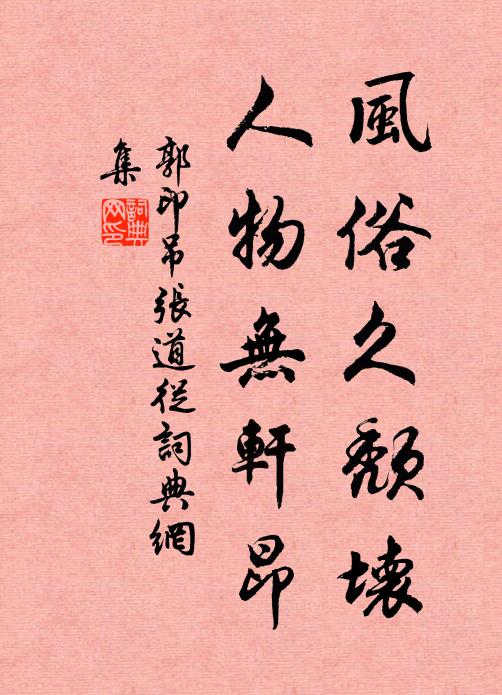 風俗久頹壞
人物無軒昂
郭印弔張道從詞典網
集
詞典網印